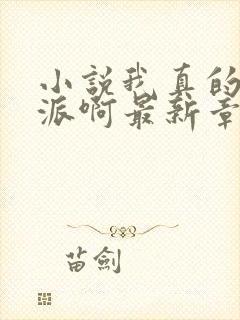 小說我真的
派啊最新章
苗劍